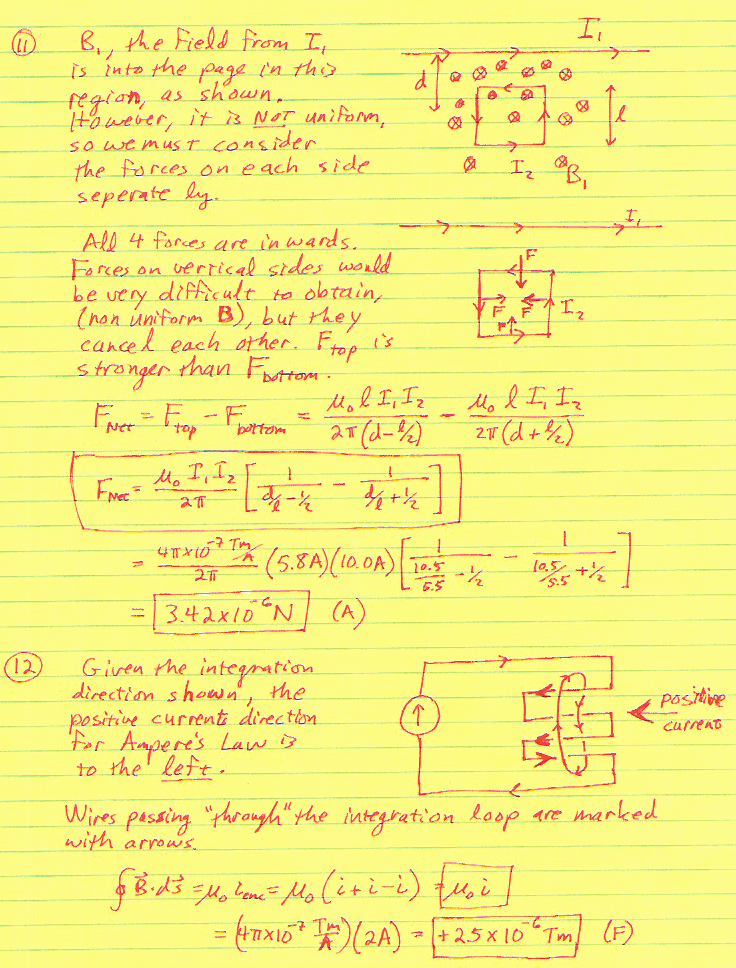 11 B₁, the field from I₁
is into the page in this
region, as shown.
However, it is NOT uniform,
so we must consider
the forces on each side
seperately.
I₁
d
l
I₂
B₁
All 4 forces are inwards.
Forces on vertical sides would
be very difficult to obtain,
(non uniform B), but they
cancel each other. F_top is
stronger than F_bottom.
I₁
F
F F
F
I₂
F_Net = F_top - F_bottom = μ₀ l I₁ I₂ / 2π(d-l/2) - μ₀ l I₁ I₂ / 2π(d+l/2)
F_Net = μ₀ I₁ I₂ / 2π [ 1 / (d/l - ½) - 1 / (d/l + ½) ]
= 4π×10⁻⁷ Tm/A / 2π (5.8A)(10.0A) [ 1 / (10.5/5.5 - ½) - 1 / (10.5/5.5 + ½) ]
= 3.42×10⁻⁶ N (A)
12 Given the integration
direction shown, the
positive currents direction
for Ampere's Law is
to the left.
positive
current
Wires passing "through" the integration loop are marked
with arrows.
∮ B⃗·ds⃗ = μ₀ i_enc = μ₀ (i+i-i) = μ₀ i
= (4π×10⁻⁷ Tm/A)(2A) = +2.5×10⁻⁶ Tm (F)